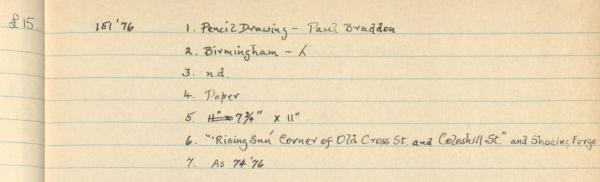 £15. 151'76 1. Pencil Drawing - Paul Braddon
2. Birmingham - L
3. n.d.
4. Paper
5. 11" x 7 3/4" x 11"
6. "'Rising Sun' Corner of Old Cross St. and Coleshill St." and Shoeing Forge
7. As 74'76